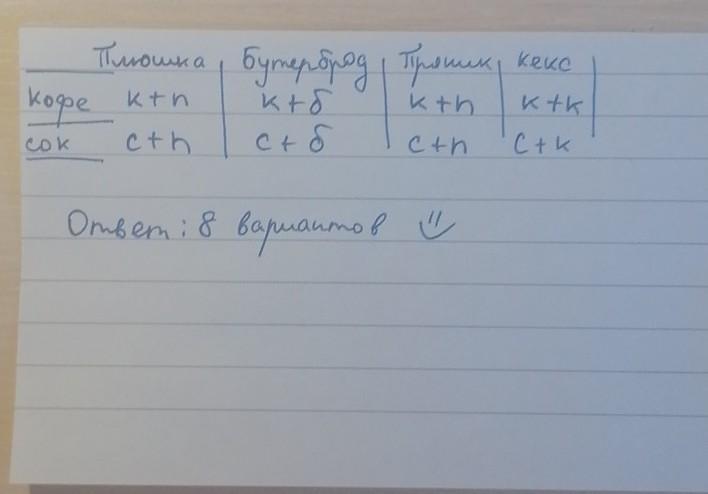 Плюшка Бутерброд Пряник кекс
кофе к+п к+б к+п к+к
сок с+п с+б с+п с+к
Ответ: 8 вариантов